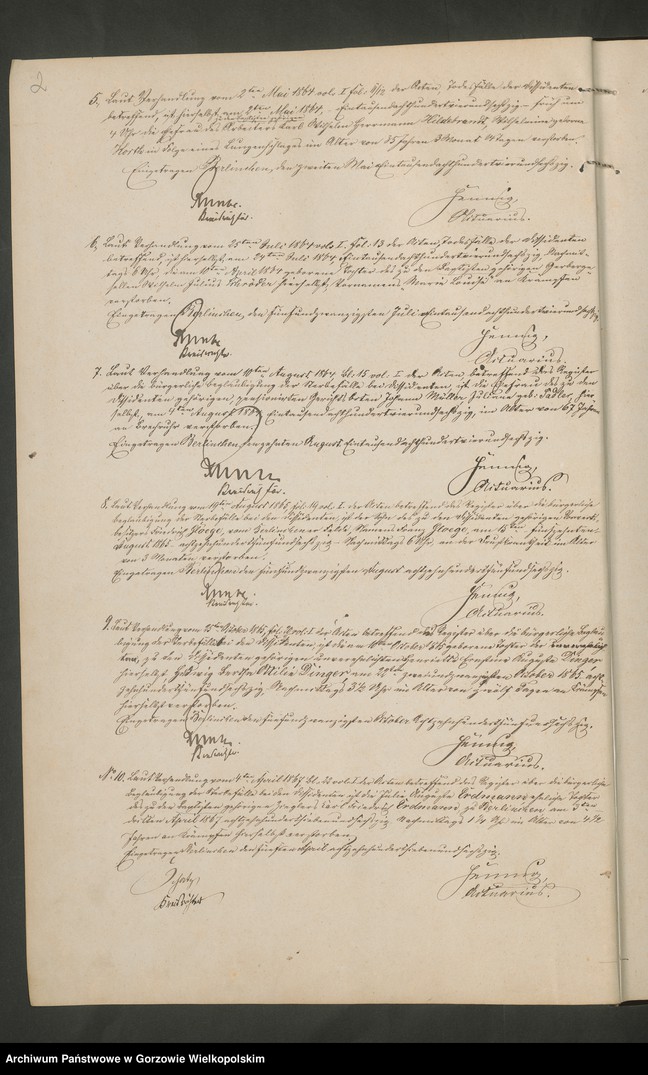 2
5. Laut Verhandlung vom 2ten Mai 1864 vol. I fol. 9/12 der Akten, Todesfälle der Dissidenten
betreffend, ist hierselbst am 2ten Mai 1864, Eintausendachthundertvierundsechszig früh um
4 Uhr die Ehefrau des Arbeiters Carl Wilhelm Herrmann Hildebrandt, Wilhelmine geborne
in Folge eines Lungenschlages im Alter von 35 Jahren 3 Monat Tagen verstorben.
Eingetragen Berlinchen, den zweiten Mai Eintausendachthundertvierundsechszig.
Kreisrichter.
Hennig,
Actuarius.
6. Laut Verhandlung vom 25ten Juli 1864 vol. I. Fol. 13 der Akten, Todesfälle der Dissidenten
betreffend, ist hierselbst, am 24ten Juli 1864, Eintausendachthundertvierundsechszig, Nachmit-
tags 6 Uhr, die am 10ten April 1864 geborene Tochter des zu den Baptisten gehörigen Gerberge-
sellen Wilhelm Julius hierselbst, Vornamens, Marie Louise an Krämpfen
verstorben.
Eingetragen Berlinchen, den fünfundzwanzigsten Juli Eintausendachthundertvierundsechszig
Kreisrichter.
Hennig,
Actuarius.
7. Laut Verhandlung vom 10ten August 1864 Bl. 15 vol. I der Akten betreffend das Register
über die bürgerliche Beglaubigung der Sterbefälle bei Dissidenten, ist die Ehefrau des zu den
Dissidenten gehörigen, pensionirten Gerichtsboten Johann Müller, Juliane geb: Sadler, hier-
selbst, am August 1864 Eintausendachthundertvierundsechszig, im Alter von 67 Jahren
an verstorben.
Eingetragen Berlinchen zehnten August Eintausendachthundertvierundsechszig.
Kreisrichter.
Hennig,
Actuarius.
8. Laut Verhandlung vom 19ten August 1865, fol. 19 vol. I. der Akten betreffend das Register über die bürgerliche
Beglaubigung der Sterbefälle bei den Dissidenten, ist der Sohn des zu den Dissidenten gehörigen
besitzers Friedrich Ploege, vom Berlinchener Felde, Namens Franz Ploege, am
August 1865 achtzehnhundertfünfundsechszig Nachmittags 6 Uhr, an der im Alter
von 3 Monaten verstorben.
Eingetragen Berlinchen den fünfundzwanzigsten August achtzehnhundertfünfundsechszig.
Kreisrichter.
Hennig,
Actuarius.
9. Laut Verhandlung vom 25ten October 1865, fol. vol. I der Akten betreffend das Register über die bürgerliche Beglau-
bigung der Sterbefälle bei den Dissidenten, ist die am October 1865 geborene Tochter der
zu den Dissidenten gehörigen unverehelichten Henriette Ernestine Auguste Dinger
hierselbst, Hedwig Bertha Otilie Dinger am October 1865, acht-
zehnhundertfünfundsechszig, Nachmittags 3½ Uhr im Alter von zwölf Tagen an Krämpfen
hierselbst verstorben.
Eingetragen Berlinchen den fünfundzwanzigsten October Achtzehnhundertfünfundsechszig.
Kreisrichter.
Hennig,
Actuarius.
No 10. Laut Verhandlung vom 5ten April 1867 Bl. 22 vol. I der Akten betreffend das Register über die bürgerliche
Beglaubigung der Sterbefälle bei den Dissidenten ist die Julie Auguste Erdmann eheliche Tochter
des zu den Baptisten gehörigen Zieglers Carl Friedrich Erdmann zu Berlinchen am 3ten
dritten April 1867 achtzehnhundertsiebenundsechszig Nachmittags 1½ Uhr im Alter von 4½
Jahren an Krämpfen hierselbst verstorben.
Eingetragen Berlinchen den fünften April achtzehnhundertsiebenundsechszig.
Kreisrichter
Hennig,
Actuarius.
Archiwum Państwowe w Gorzowie Wielkopolskim